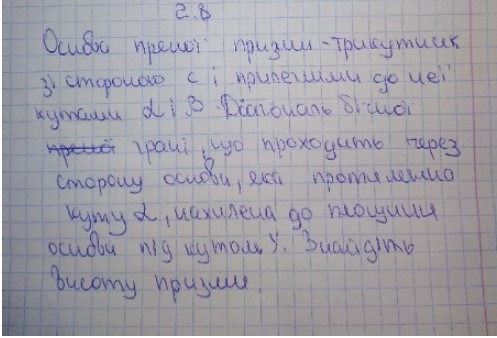 2.8
Основа прямої призми - трикутник
зі стороною c і прилеглими до неї
кутами α і β. Діагональ бічної
грані, що проходить через
сторону основи, яка протилежна
куту α, нахилена до площини
основи під кутом γ. Знайдіть
висоту призми.